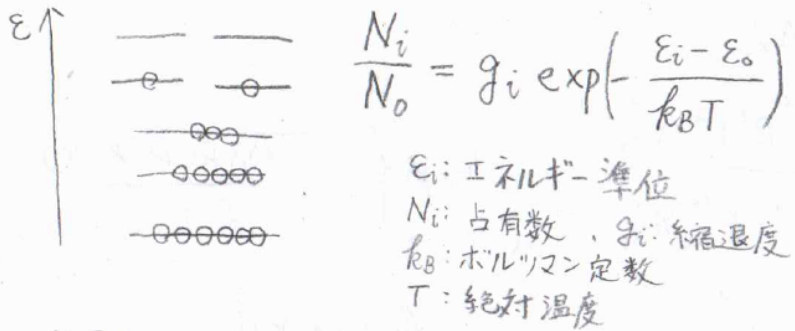 ε
N_i/N_0 = g_i exp(-(ε_i - ε_0)/(k_B T))
ε_i: エネルギー準位
N_i: 占有数、g_i: 縮退度
k_B: ボルツマン定数
T: 絶対温度